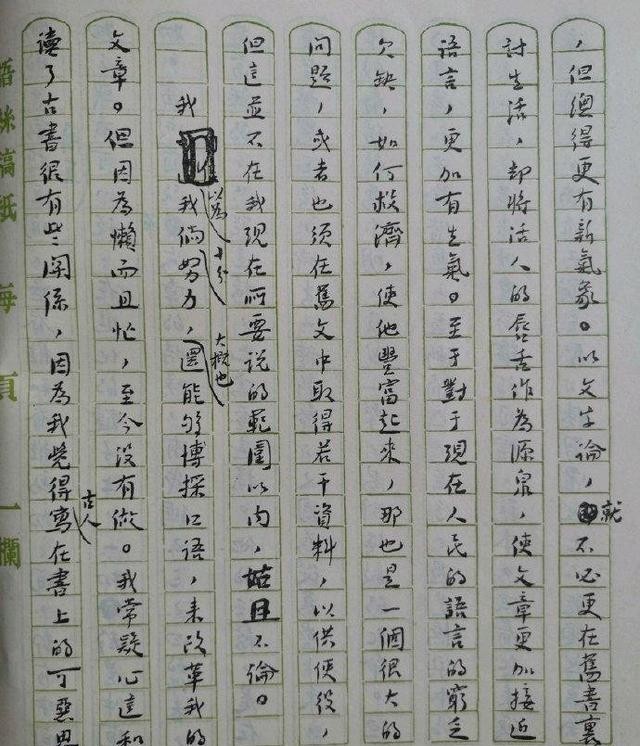 ，但總得更有新氣象。以文字論，就不必更在舊書裏
討生活，却將活人的唇舌作為源泉，使文章更加接近
語言，更加有生氣。至于對于現在人民的語言的窮乏
欠缺，如何救濟，使他豐富起來，那也是一個很大的
問題，或者也須在舊文中取得若干資料，以供使役，
但這並不在我現在所要說的範圍以內，姑且不論。
我以為我倘十分努力，大概也還能够博採口語，來改革我的
文章。但因為懶而且忙，至今沒有做。我常疑心這和
讀了古書很有些關係，因為我覺得古人寫在書上的可惡思
絲稿紙 每頁一欄